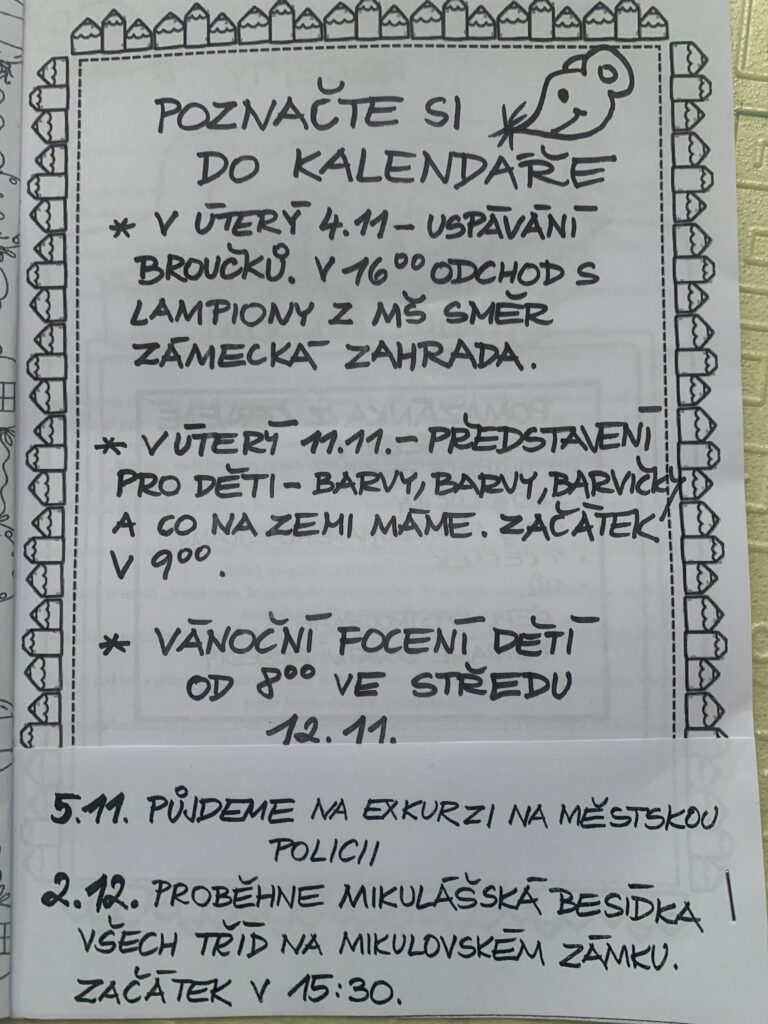 POZNAČTE SI
DO KALENDÁŘE
* V ÚTERÝ 4.11 - USPÁVÁNÍ
BROUČKŮ. V 16⁰⁰ ODCHOD S
LAMPIONY Z MŠ SMĚR
ZÁMECKÁ ZAHRADA.
* V ÚTERÝ 11.11. - PŘEDSTAVENÍ
PRO DĚTI - BARVY, BARVY, BARVIČKY
A CO NA ZEMI MÁME. ZAČÁTEK
V 9⁰⁰.
* VÁNOČNÍ FOCENÍ DĚTÍ
OD 8⁰⁰ VE STŘEDU
12.11.
5.11. PŮJDEME NA EXKURZI NA MĚSTSKOU
POLICII
2.12. PROBĚHNE MIKULÁŠSKÁ BESÍDKA
VŠECH TŘÍD NA MIKULOVSKÉM ZÁMKU.
ZAČÁTEK V 15:30.